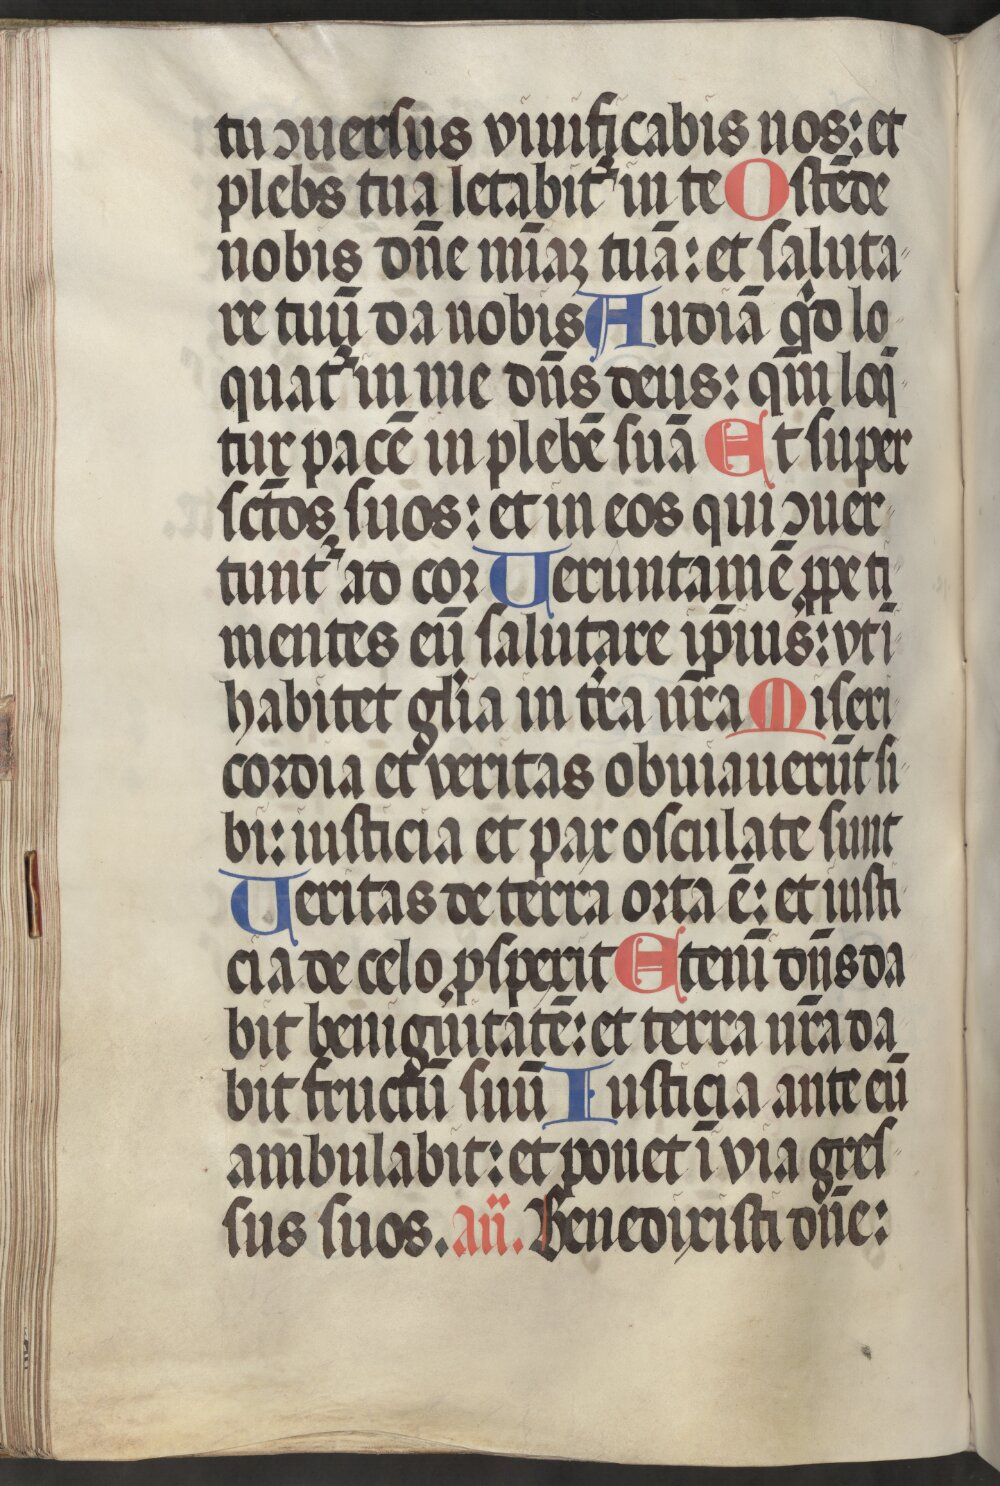 tu ↄuersus viuificabis nos: et
plebs tua letabit᷑ in te Ostēde
nobis dn̄e mi̅aꝫ tuā: et saluta-
re tuū da nobis Audiā qͥd lo
quat᷑ in me dn̄s deus: qm̄ loq̄-
tur pacē in plebē suā Et super
sct̄os suos: et in eos qui ↄuer-
tunt᷑ ad cor Ueruntamē ꝓpe ti-
mentes eū salutare ip̄ius: vti̅-
habitet gl̓ia in tr̓a nr̄a Miseri-
cordia et veritas obuiauerūt si-
bi: iusticia et pax osculate sunt
Ueritas de terra orta ē: et iusti-
cia de celo ꝓsperit Eteni̅ dn̄s da
bit benigͥnitatē: et terra nr̄a da-
bit fructū suū Iusticia ante eū
ambulabit: et ponet ī via gres-
sus suos. an̄. Benedixisti dn̄e: